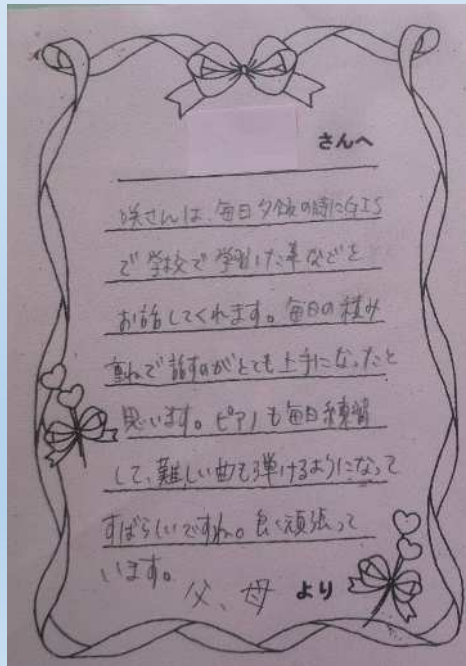 さんへ
咲さんは、毎日夕飯の時にGIS
で学校で学習した事などを
お話してくれます。毎日の積み
重ねで話すのがとても上手になったと
思います。ピアノも毎日練習
して、難しい曲も弾けるようになって
すばらしいですね。良く頑張って
います。
父、母 より